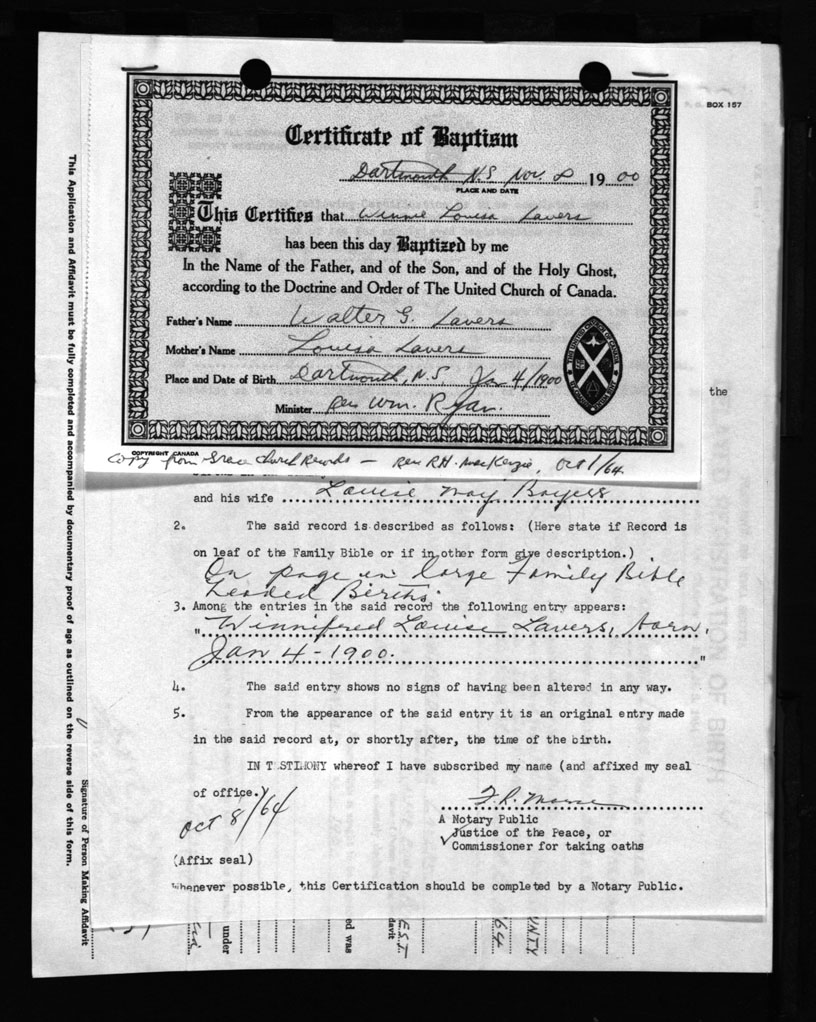 BOX 157
Certificate of Baptism
Dartmouth N.S. Nov. 8 1900
PLACE AND DATE
This Certifies that Winnie Louisa Lavers
has been this day Baptized by me
In the Name of the Father, and of the Son, and of the Holy Ghost,
according to the Doctrine and Order of The United Church of Canada.
Father's Name Walter G. Lavers
Mother's Name Louisa Lavers
Place and Date of Birth Dartmouth, N.S. Jan 4/1900
Minister Rev Wm. Ryan.
COPYRIGHT CANADA
Copy from Grace Church Records - Rev R.H. MacKenzie, Oct 1/64.
the
and his wife Louise May Boyers
2. The said record is described as follows: (Here state if Record is
on leaf of the Family Bible or if in other form give description.)
On page in large Family Bible
Headed Births.
3. Among the entries in the said record the following entry appears:
"Winnifred Louise Lavers, born,
Jan 4 - 1900. "
4. The said entry shows no signs of having been altered in any way.
5. From the appearance of the said entry it is an original entry made
in the said record at, or shortly after, the time of the birth.
IN TESTIMONY whereof I have subscribed my name (and affixed my seal
of office.)
Oct 8/64
A Notary Public
Justice of the Peace, or
Commissioner for taking oaths
(Affix seal)
Whenever possible, this Certification should be completed by a Notary Public.
This Application and Affidavit must be fully completed and accompanied by documentary proof of age as outlined on the reverse side of this form.
Signature of Person Making Affidavit
under
ed was
davit
64